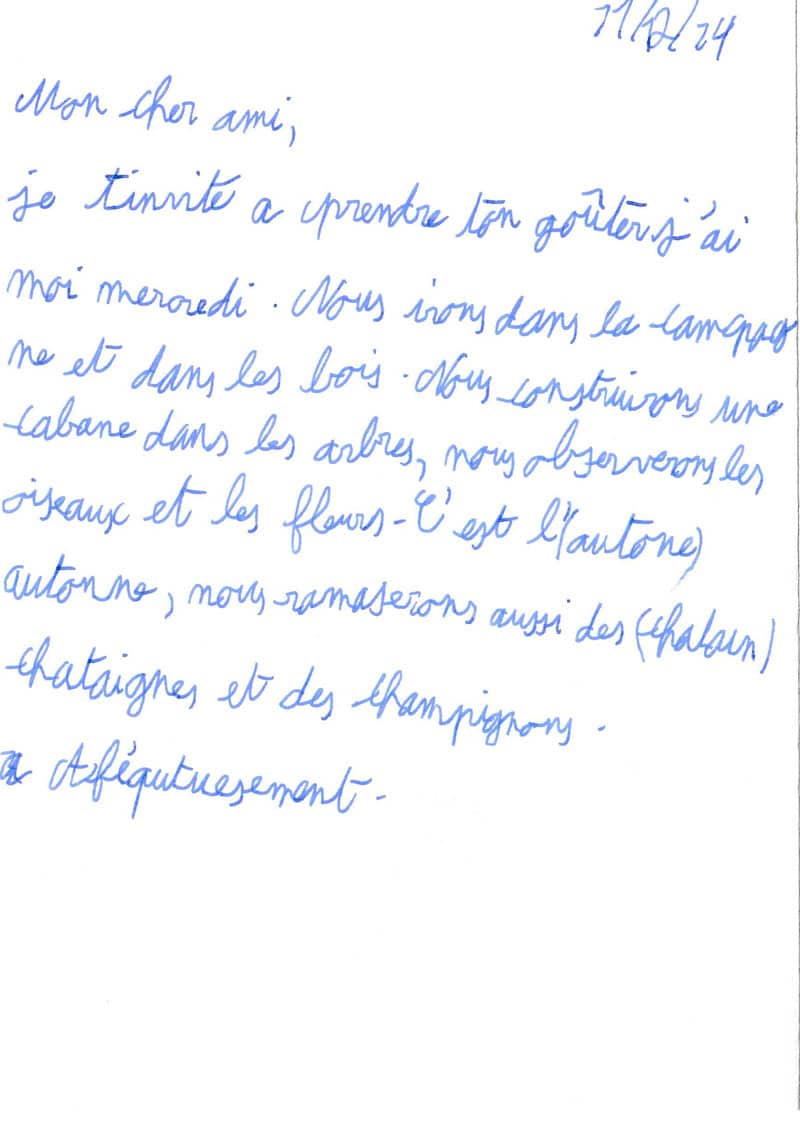 11/12/24
Mon cher ami,
je t'invite a prendre ton goûter j'ai
moi mercredi. Nous irons dans la campag
ne et dans les bois. Nous construirons une
cabane dans les arbres, nous observerons les
oiseaux et les fleurs. C'est l'(autone)
autonne, nous ramaserons aussi des (chatain)
chataignes et des champignons.
Afféqutuesement.